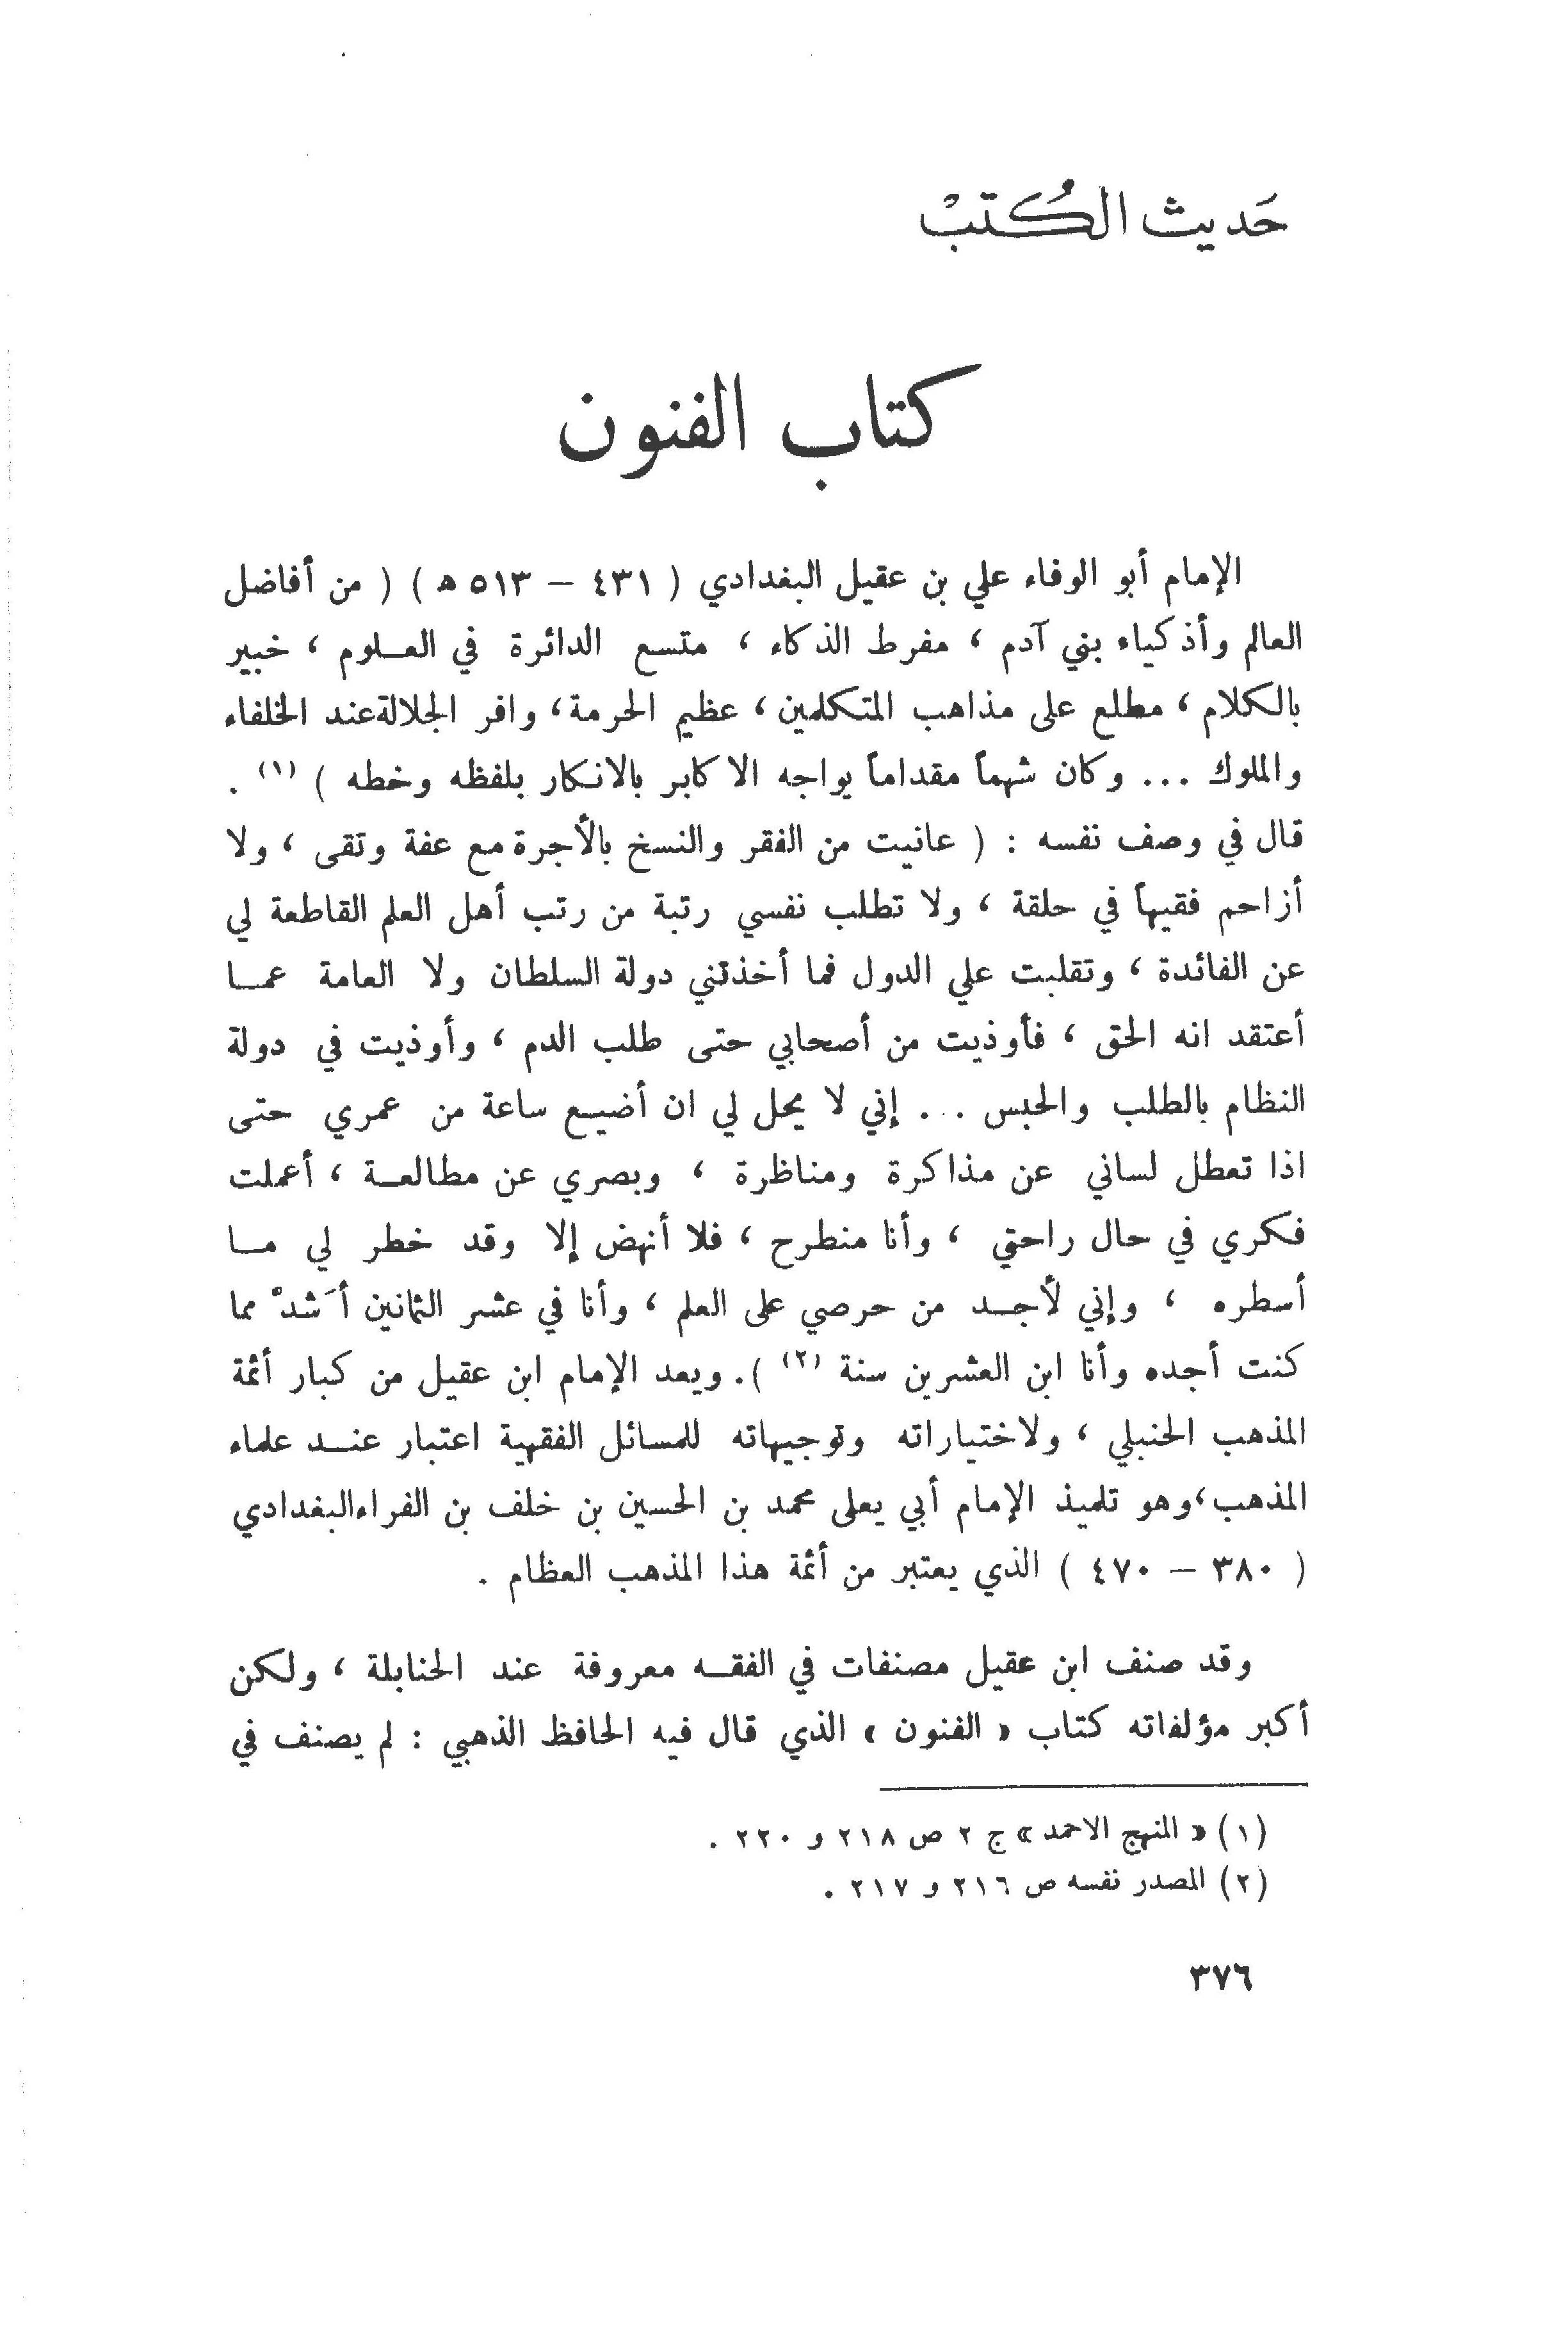 حَديث الكُتبْ
كتاب الفنون
الإمام أبو الوفاء علي بن عقيل البغدادي ( ٤٣١ – ٥١٣ ه ) ( من أفاضل
العالم وأذكياء بني آدم ، مفرط الذكاء ، متسع الدائرة في العـلوم ، خبير
بالكلام ، مطلع على مذاهب المتكلمين ، عظيم الحرمة ، وافر الجلالة عند الخلفاء
والملوك ... وكان شهماً مقداماً يواجه الاكابر بالانكار بلفظه وخطه ) (١) .
قال في وصف نفسه : ( عانيت من الفقر والنسخ بالأجرة مع عفة وتقى ، ولا
أزاحم فقيهاً في حلقة ، ولا تطلب نفسي رتبة من رتب أهل العلم القاطعة لي
عن الفائدة ، وتقلبت علي الدول فما أخذتني دولة السلطان ولا العامة عمـا
أعتقد انه الحق ، فأوذيت من أصحابي حتى طلب الدم ، وأوذيت في دولة
النظام بالطلب والحبس ... إني لا يحل لي ان أضيـع ساعة من عمري حتى
اذا تعطل لساني عن مذاكرة ومناظرة ، وبصري عن مطالعـة ، أعملت
فكري في حال راحتي ، وأنا منطرح ، فلا أنهض إلا وقد خطر لي مـا
أسطره ، وإني لأجـد من حرصي على العلم ، وأنا في عشر الثمانين أَشدْ مما
كنت أجده وأنا ابن العشرين سنة (٢) ). ويعد الإمام ابن عقيل من كبار أئمة
المذهب الحنبلي ، ولاختياراته وتوجيهاته للمسائل الفقهية اعتبار عنـد علماء
المذهب ، وهو تلميذ الإمام أبي يعلى محمد بن الحسين بن خلف بن الفراء البغدادي
( ٣٨٠ – ٤٧٠ ) الذي يعتبر من أئمة هذا المذهب العظام .
وقد صنف ابن عقيل مصنفات في الفقـه معروفة عند الحنابلة ، ولكن
أكبر مؤلفاته كتاب « الفنون » الذي قال فيه الحافظ الذهبي : لم يصنف في
(١) « المنهج الاحمد » ج ٢ ص ٢١٨ و ٢٢٠ .
(٢) المصدر نفسه ص ٢١٦ و ٢١٧ .
٣٧٦